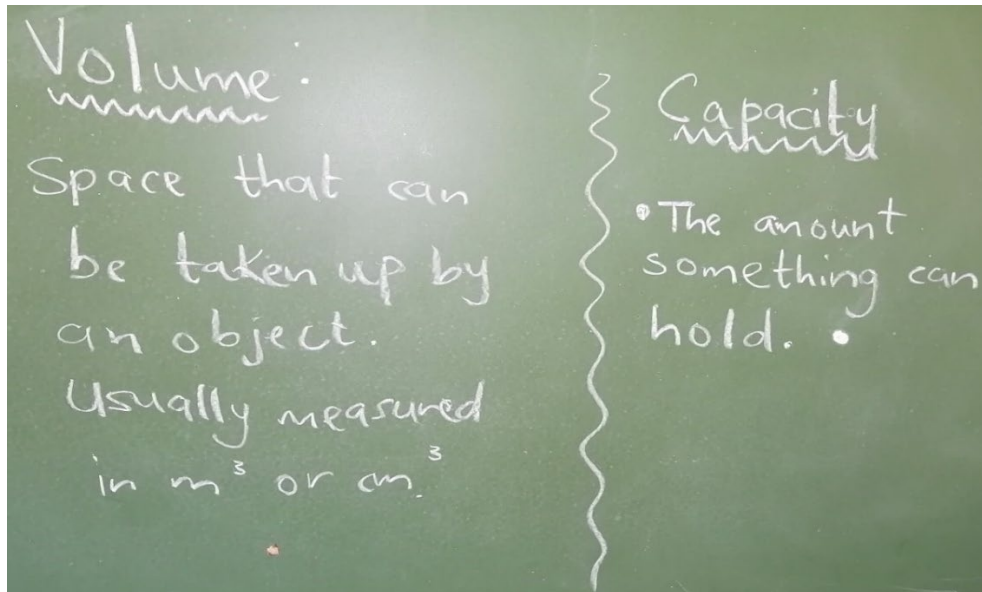 Volume:
Space that can
be taken up by
an object.
Usually measured
in m³ or cm³.
Capacity
• The amount
something can
hold.